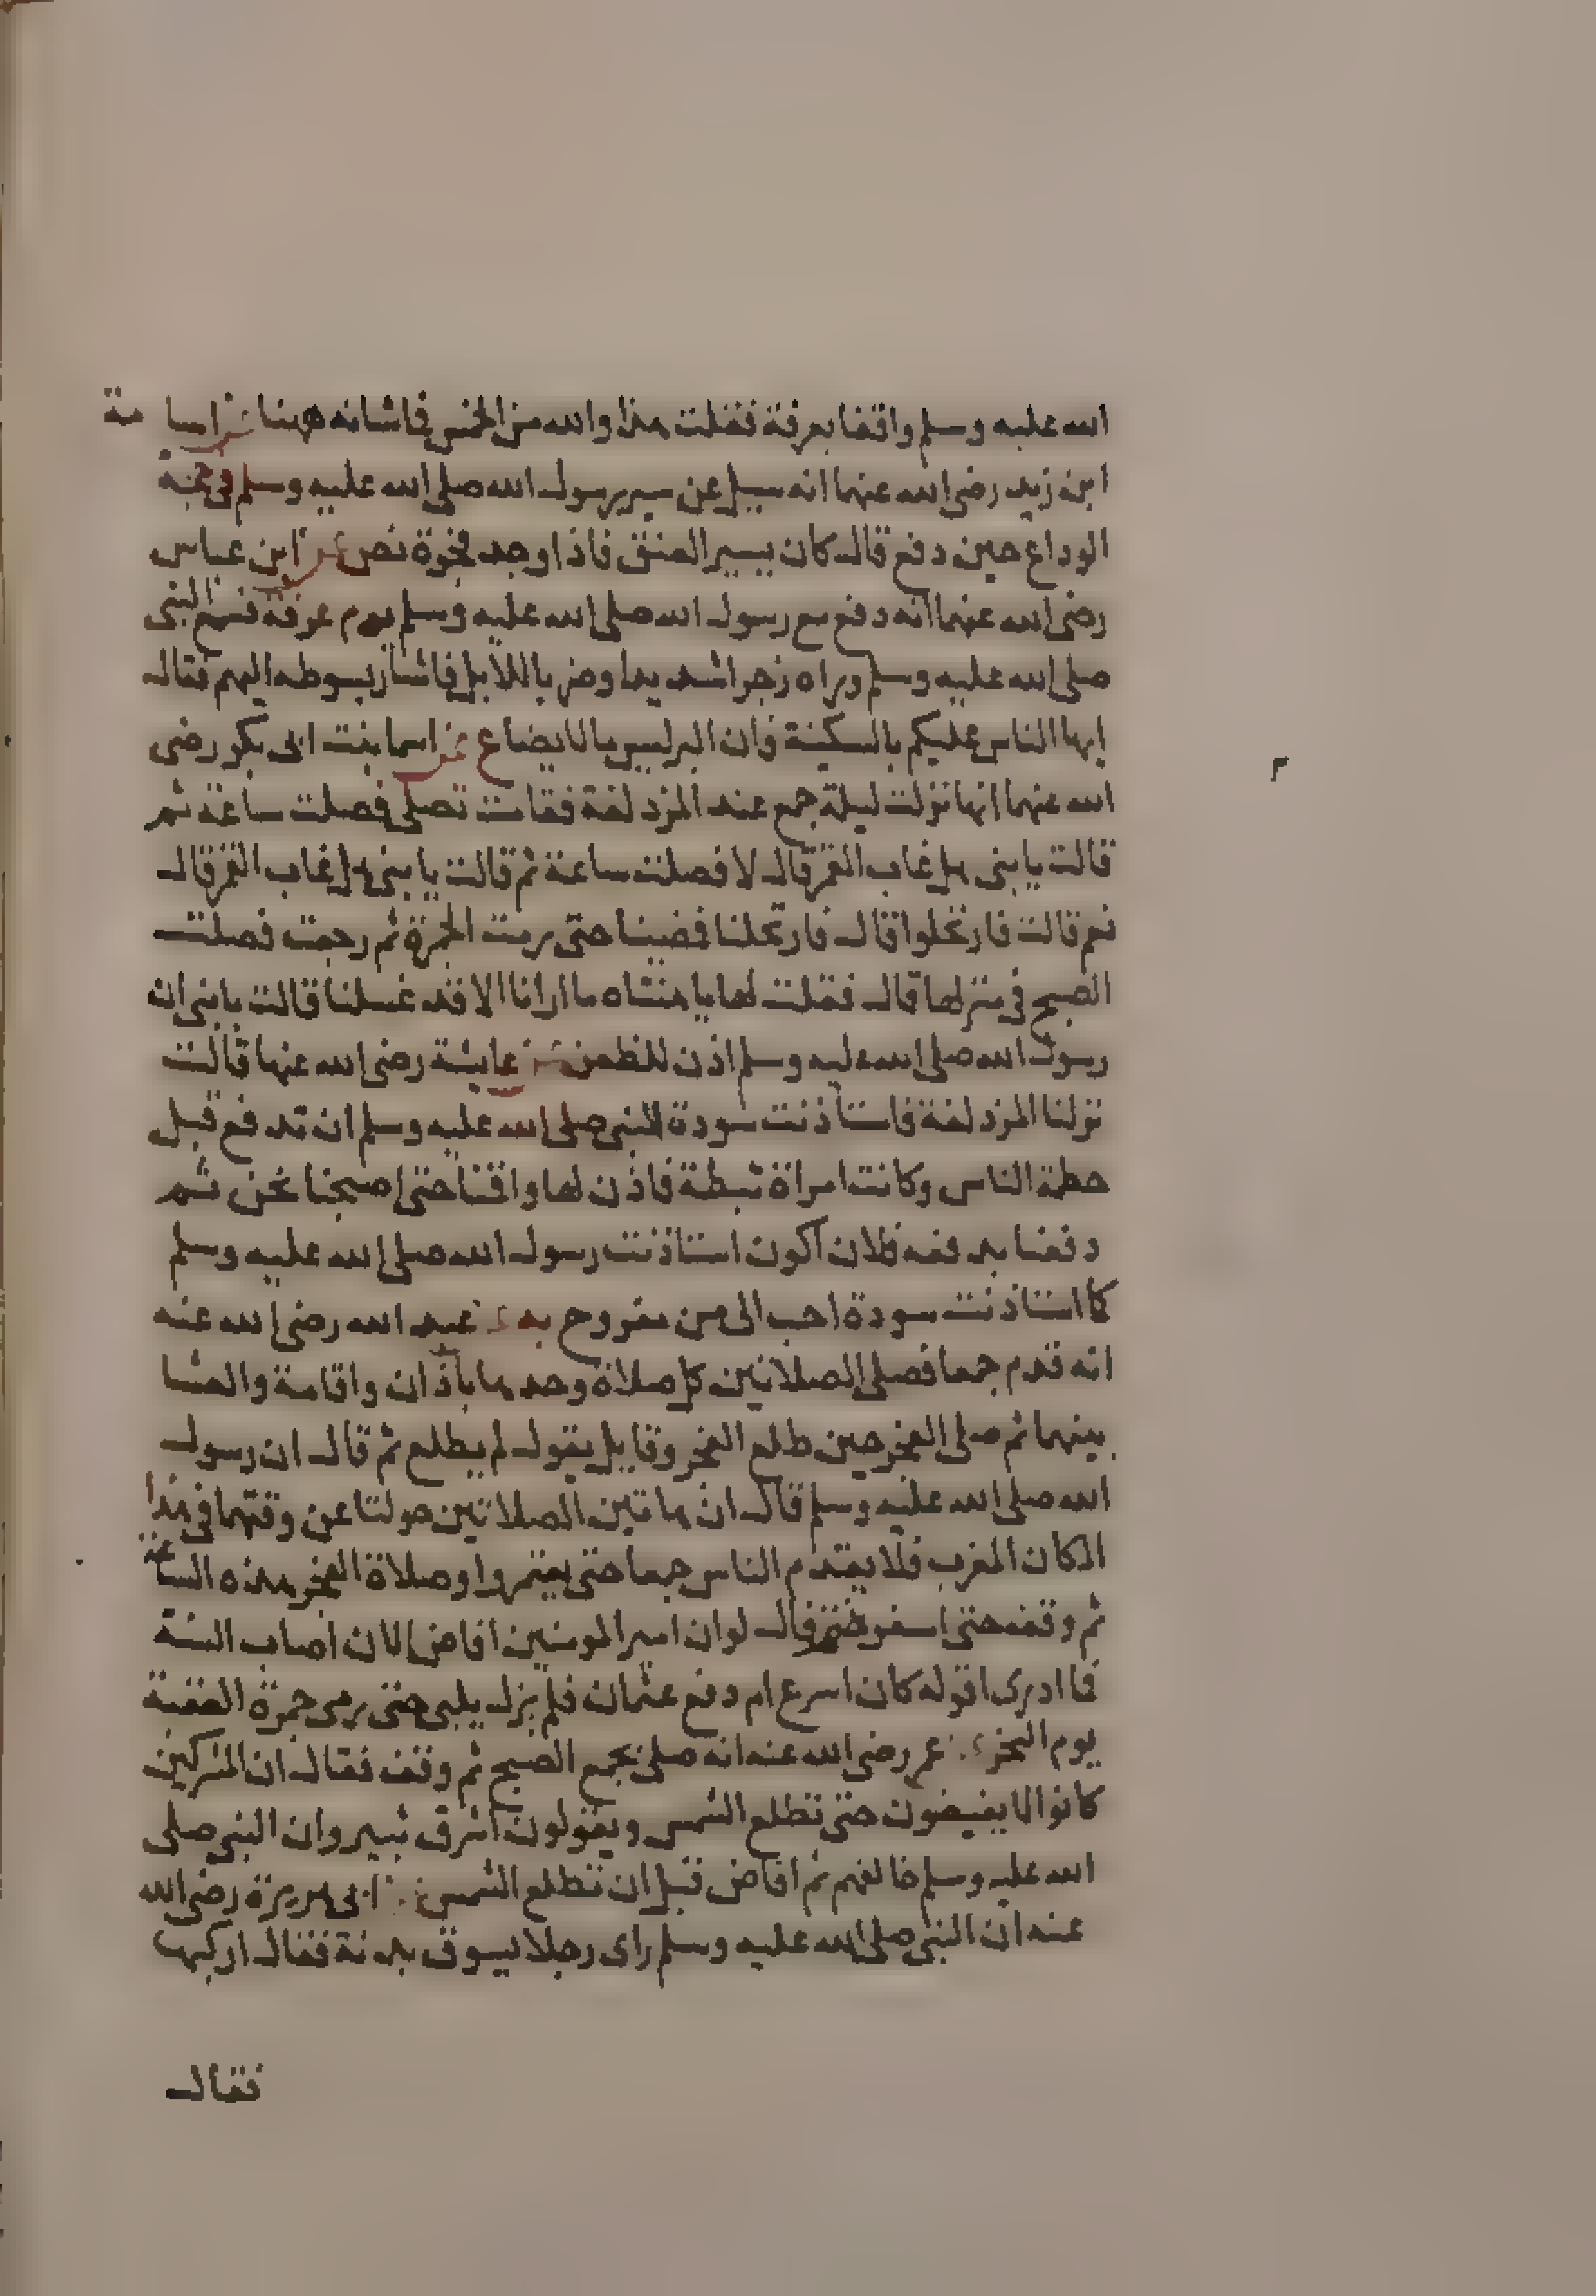 الله عليه وسلم واقفا بعرفة فقلت هذا والله من الحمس فما شانه ههنا عن اسامة
ابن زيد رضي الله عنهما انه سيل عن سير رسول الله صلى الله عليه وسلم في حجة
الوداع حين دفع قال كان يسير العنق فاذا وجد فجوة نص عن ابن عباس
رضي الله عنهما انه دفع مع رسول الله صلى الله عليه وسلم يوم عرفة فسمع النبي
صلى الله عليه وسلم وراه زجرا شديدا وضربا للابل فاشار بسوطه اليهم فقال
ايها الناس عليكم بالسكينة فان البر ليس بالايضاع عن اسما بنت ابى بكر رضي
الله عنهما انها نزلت ليلة جمع عند المزدلفة فقامت تصلي فصلت ساعة ثم
قالت يا بني هل غاب القمر قال لا فصلت ساعة ثم قالت يا بني هل غاب القمر قال
نعم قالت فارتحلوا قال فارتحلنا فمضينا حتى رمت الجمرة ثم رجعت فصلت
الصبح في منزلها قال فقلت لها يا هنتاه ما ارانا الا قد غسلنا قالت يا بني ان
رسول الله صلى الله عليه وسلم اذن للظعن عن عايشة رضي الله عنها قالت
نزلنا المزدلفة فاستاذنت سودة النبي صلى الله عليه وسلم ان تدفع قبل
حطمة الناس وكانت امراة ثبطة فاذن لها واقمنا حتى اصبحنا نحن ثم
دفعنا بدفعه فلان اكون استاذنت رسول الله صلى الله عليه وسلم
كما استاذنت سودة احب الى من مفروح به عن عبد الله رضي الله عنه
انه قدم جمعا فصلى الصلاتين كل صلاة وحدها باذان واقامة والعشا
بينهما ثم صلى الفجر حين طلع الفجر وقايل يقول لم يطلع ثم قال ان رسول
الله صلى الله عليه وسلم قال ان هاتين الصلاتين حولتا عن وقتهما في هذا
المكان المغرب فلا يقدم الناس جمعا حتى يعتمروا وصلاة الفجر هذه الساعة
ثم وقف حتى اسفر ثم قال لو ان امير المومنين افاض الان اصاب السنة
فما ادرى اقوله كان اسرع ام دفع عثمان فلم يزل يلبي حتى رمى جمرة العقبة
يوم النحر عن عمر رضي الله عنه انه صلى بجمع الصبح ثم وقف فقال ان المشركين
كانوا لا يفيضون حتى تطلع الشمس ويقولون اشرق ثبير وان النبي صلى
الله عليه وسلم خالفهم ثم افاض قبل ان تطلع الشمس عن ابى هريرة رضي الله
عنه ان النبي صلى الله عليه وسلم راى رجلا يسوق بدنة فقال اركبها
فقال